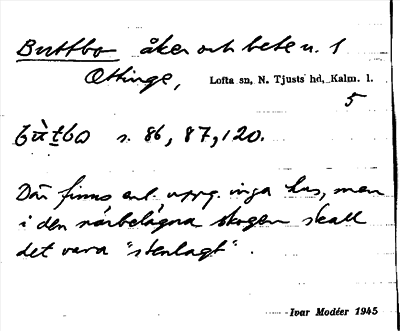 Buttbo åker och bete u. 1
Ottinge, Lofta sn, N. Tjusts hd, Kalm. l.
5
bu̇̀tbω s. 86, 87, 120.
Där finns enl. uppg. inga hus, men
i den närbelägna skogen skall
det vara "stenlagt".
Ivar Modéer 1945